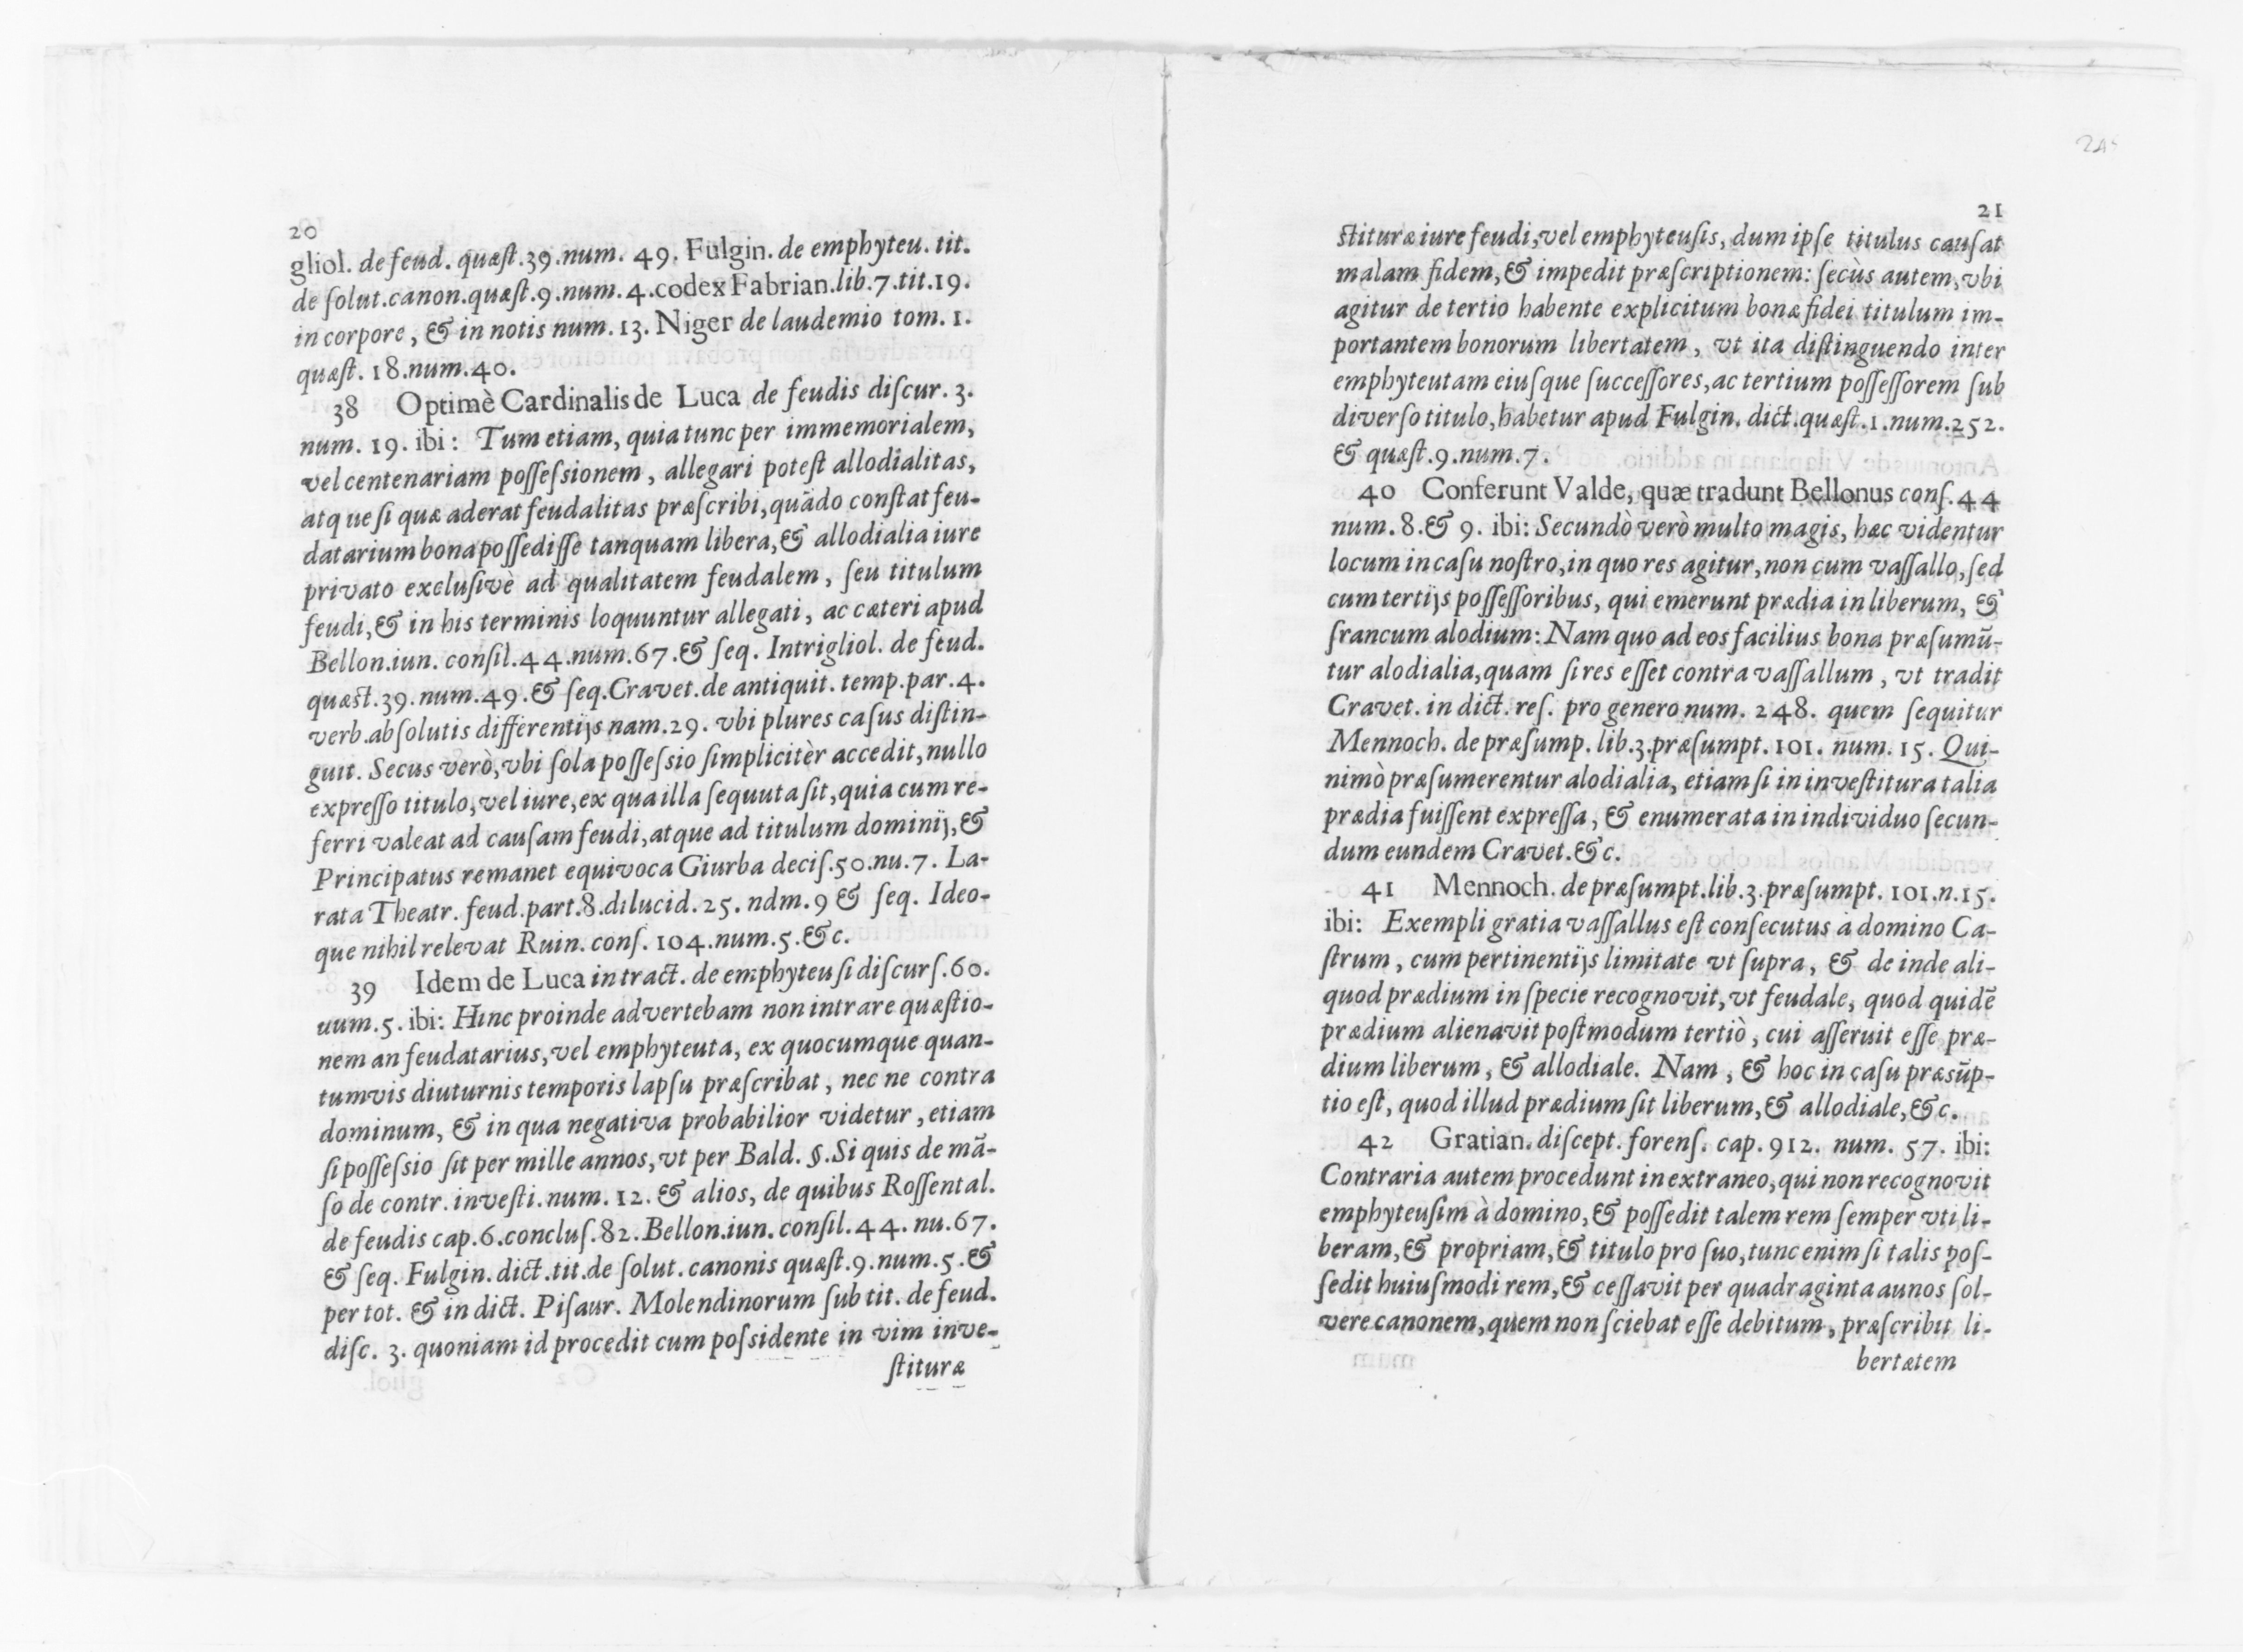 20
gliol. de feud. quæſt.39.num. 49. Fulgin. de emphyteu. tit.
de ſolut.canon.quæſt.9.num.4.codex Fabrian.lib.7.tit.19.
in corpore, & in notis num.13. Niger de laudemio tom. 1.
quæſt. 18.num.40.
38 Optimè Cardinalis de Luca de feudis diſcur. 3.
num. 19. ibi: Tum etiam, quia tunc per immemorialem,
vel centenariam poſſeſsionem, allegari poteſt allodialitas,
atque ſi quæ aderat feudalitas præſcribi, quãdo conſtat feu-
datarium bona poſſediſſe tanquam libera, & allodialia iure
privato excluſivè ad qualitatem feudalem, ſeu titulum
feudi, & in his terminis loquuntur allegati, ac cæteri apud
Bellon.iun. conſil.44.num.67.& ſeq. Intrigliol. de feud.
quæst.39.num.49.& ſeq.Cravet.de antiquit. temp.par.4.
verb.abſolutis differentijs nam.29. vbi plures caſus diſtin-
guit. Secus verò, vbi ſola poſſeſsio ſimplicitèr accedit, nullo
expreſſo titulo, vel iure, ex qua illa ſequuta ſit, quia cum re-
ferri valeat ad cauſam feudi, atque ad titulum dominij, &
Principatus remanet equivoca Giurba deciſ.50.nu.7. La-
rata Theatr. feud.part.8.dilucid.25. ndm.9 & ſeq. Ideo-
que nihil relevat Ruin. conſ. 104.num.5.&c.
39 Idem de Luca in tract. de emphyteuſi diſcurſ.60.
uum.5. ibi: Hinc proinde advertebam non intrare quæſtio-
nem an feudatarius, vel emphyteuta, ex quocumque quan-
tumvis diuturnis temporis lapſu præſcribat, nec ne contra
dominum, & in qua negativa probabilior videtur, etiam
ſi poſſeſsio ſit per mille annos, vt per Bald. §. Si quis de mã-
ſo de contr. inveſti.num. 12. & alios, de quibus Roſſental.
de feudis cap.6.concluſ.82.Bellon.iun. conſil.44. nu.67.
& ſeq. Fulgin. dict.tit.de ſolut.canonis quæſt.9.num.5.&
per tot. & in dict. Piſaur. Molendinorum ſub tit. de feud.
diſc. 3. quoniam id procedit cum poſsidente in vim inve-
ſtituræ
21
ſtituræ iure feudi, vel emphyteuſis, dum ipſe titulus cauſat
malam fidem, & impedit præſcriptionem: ſecùs autem, vbi
agitur de tertio habente explicitum bonæ fidei titulum im-
portantem bonorum libertatem, vt ita diſtinguendo inter
emphyteutam eiuſque ſucceſſores, ac tertium poſſeſſorem ſub
diverſo titulo, habetur apud Fulgin. dict.quæſt.1.num.252.
& quæſt.9.num.7.
40 Conferunt Valde, quæ tradunt Bellonus conſ.44
num.8.& 9. ibi: Secundò verò multo magis, hæc videntur
locum in caſu noſtro, in quo res agitur, non cum vaſſallo, ſed
cum tertijs poſſeſſoribus, qui emerunt prædia in liberum, &
francum alodium: Nam quo ad eos facilius bona præſumũ-
tur alodialia, quam ſi res eſſet contra vaſſallum, vt tradit
Cravet. in dict. reſ. pro genero num. 248. quem ſequitur
Mennoch. de præſump. lib.3.præſumpt. 101. num. 15. Qui-
nimò præſumerentur alodialia, etiam ſi in inveſtitura talia
prædia fuiſſent expreſſa, & enumerata in individuo ſecun-
dum eundem Cravet.&c.
41 Mennoch. de præſumpt.lib.3.præſumpt. 101.n.15.
ibi: Exempli gratia vaſſallus eſt conſecutus à domino Ca-
ſtrum, cum pertinentijs limitate vt ſupra, & de inde ali-
quod prædium in ſpecie recognovit, vt feudale, quod quidẽ
prædium alienavit poſtmodum tertiò, cui aſſeruit eſſe præ-
dium liberum, & allodiale. Nam, & hoc in caſu præsũp-
tio eſt, quod illud prædium ſit liberum, & allodiale, &c.
42 Gratian. diſcept. forenſ. cap.912. num. 57. ibi:
Contraria autem procedunt in extraneo, qui non recognovit
emphyteuſim à domino, & poſſedit talem rem ſemper vti li-
beram, & propriam, & titulo pro ſuo, tunc enim ſi talis poſ-
ſedit huiuſmodi rem, & ceſſavit per quadraginta aunos ſol-
vere canonem, quem non ſciebat eſſe debitum, præſcribit li-
bertætem